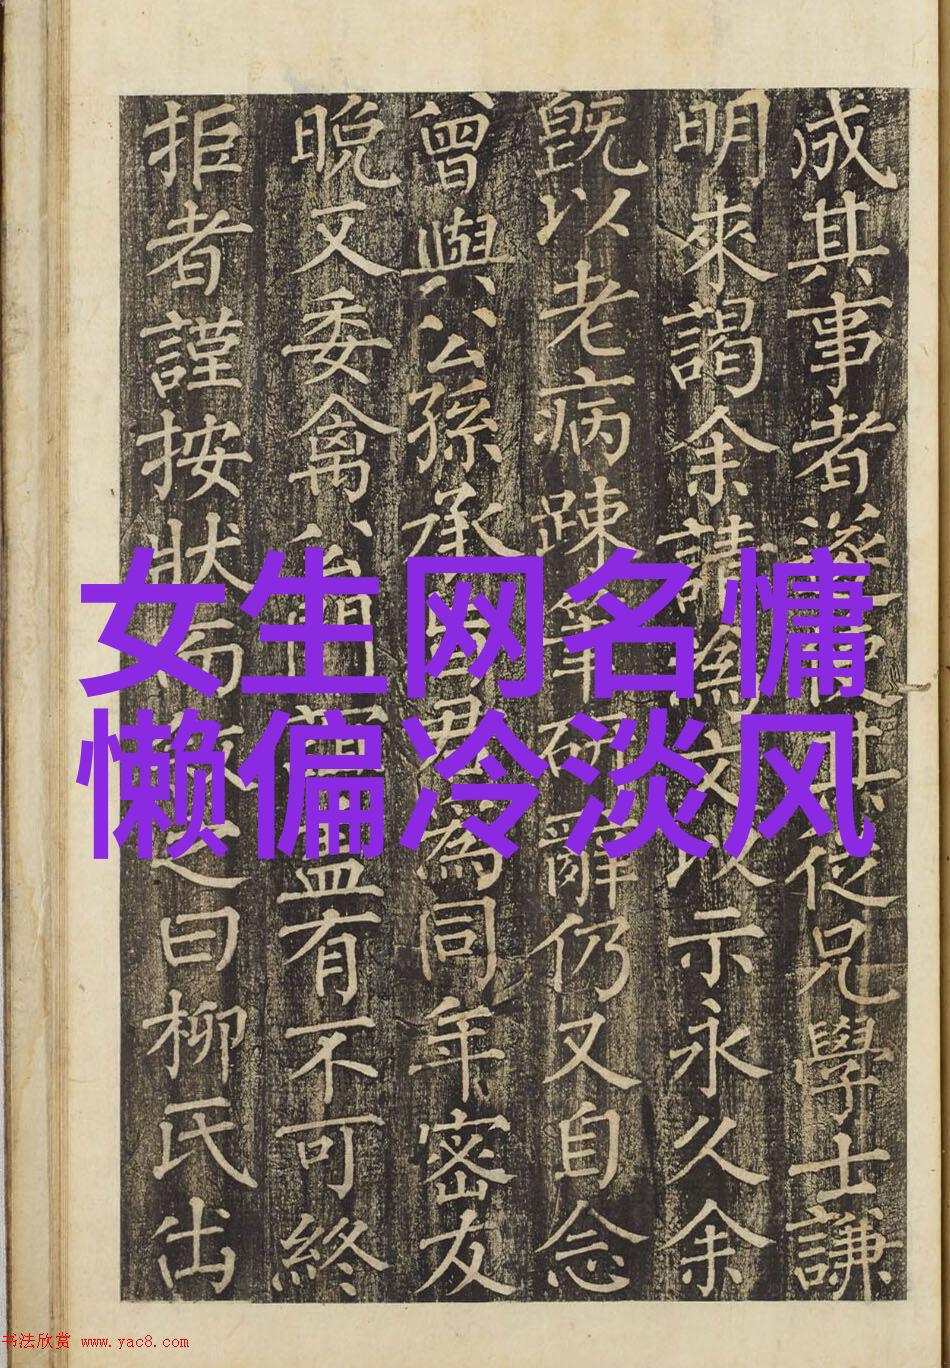 成其事者使其從兄學士謙
明來謁余請為文以示永久余
既以老病踈筆硯辭仍又自念
曾與公孫承君為同年密友
晚又委禽門有不可終
拒者謹按狀而之曰柳氏出
女生网名慵
懒偏冷淡风
书法欣赏 www.yac8.com